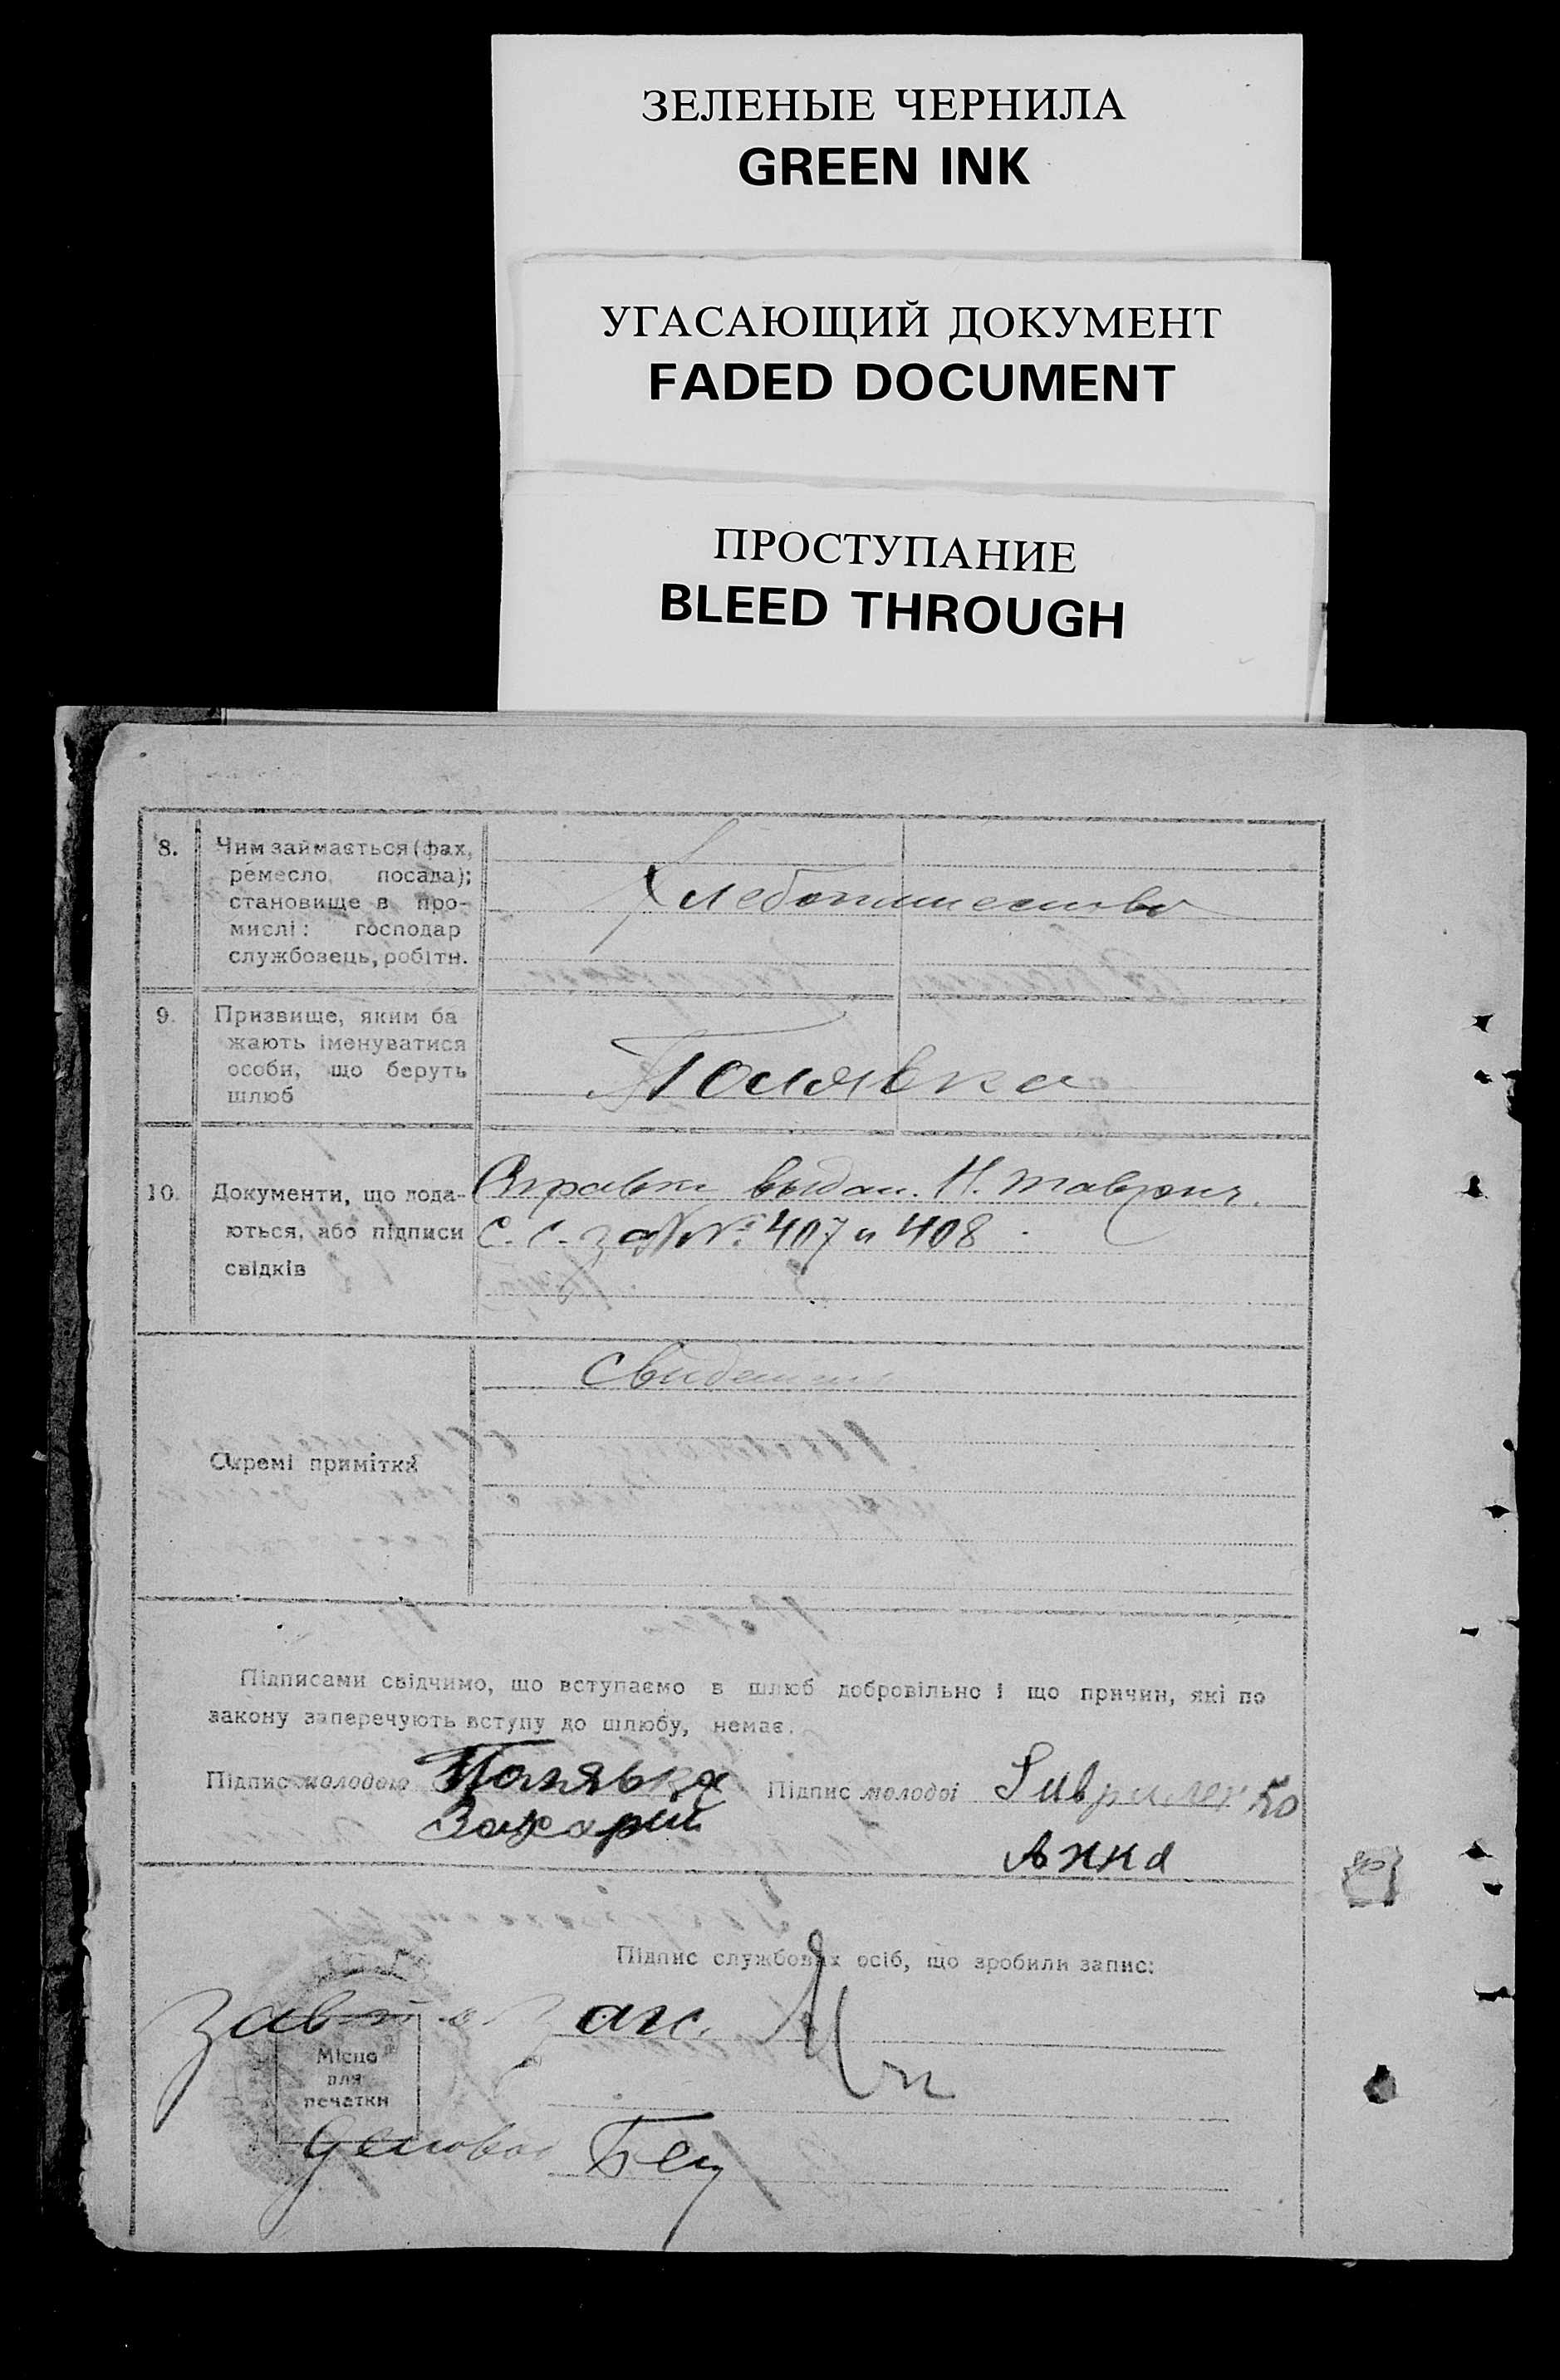 ЗЕЛЕНЫЕ ЧЕРНИЛА
GREEN INK
УГАСАЮЩИЙ ДОКУМЕНТ
FADED DOCUMENT
ПРОСТУПАНИЕ
BLEED THROUGH
8.
Чим займається (фах,
ремесло, посада);
становище в про-
мислі: господар
службовець, робітн.
Хлебопашество
9.
Призвище, яким ба
жають іменуватися
особи, що беруть
шлюб
Полявка
10.
Документи, що пода-
ються, або підписи
свідків
Справки выдан.
С. С. за №№ 407 и 408
Окремі примітки
Підписами свідчимо, що вступаємо в шлюб добровільно і що причин, які по
закону заперечують вступу до шлюбу, немає.
Підпис молодого Полявка
Захарий
Підпис молодої
Анна
Підпис службових осіб, що зробили запис:
Зав загс.
Місце
для
печатки